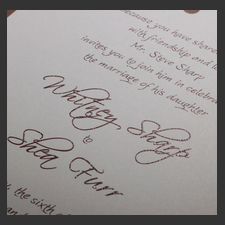 because you have share
with friendship and l
Mr. Steve Sharp
invites you to join him in celebra
the marriage of his daughter
Whitney Sharp
to
Shea Furr
the sixth